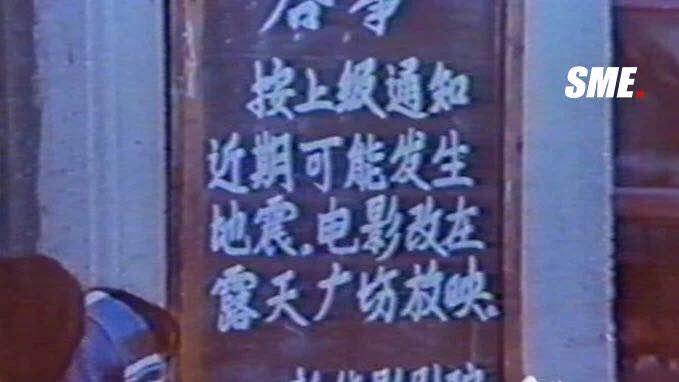 启事
按上级通知
近期可能发生
地震。电影改在
露天广场放映。
SME.